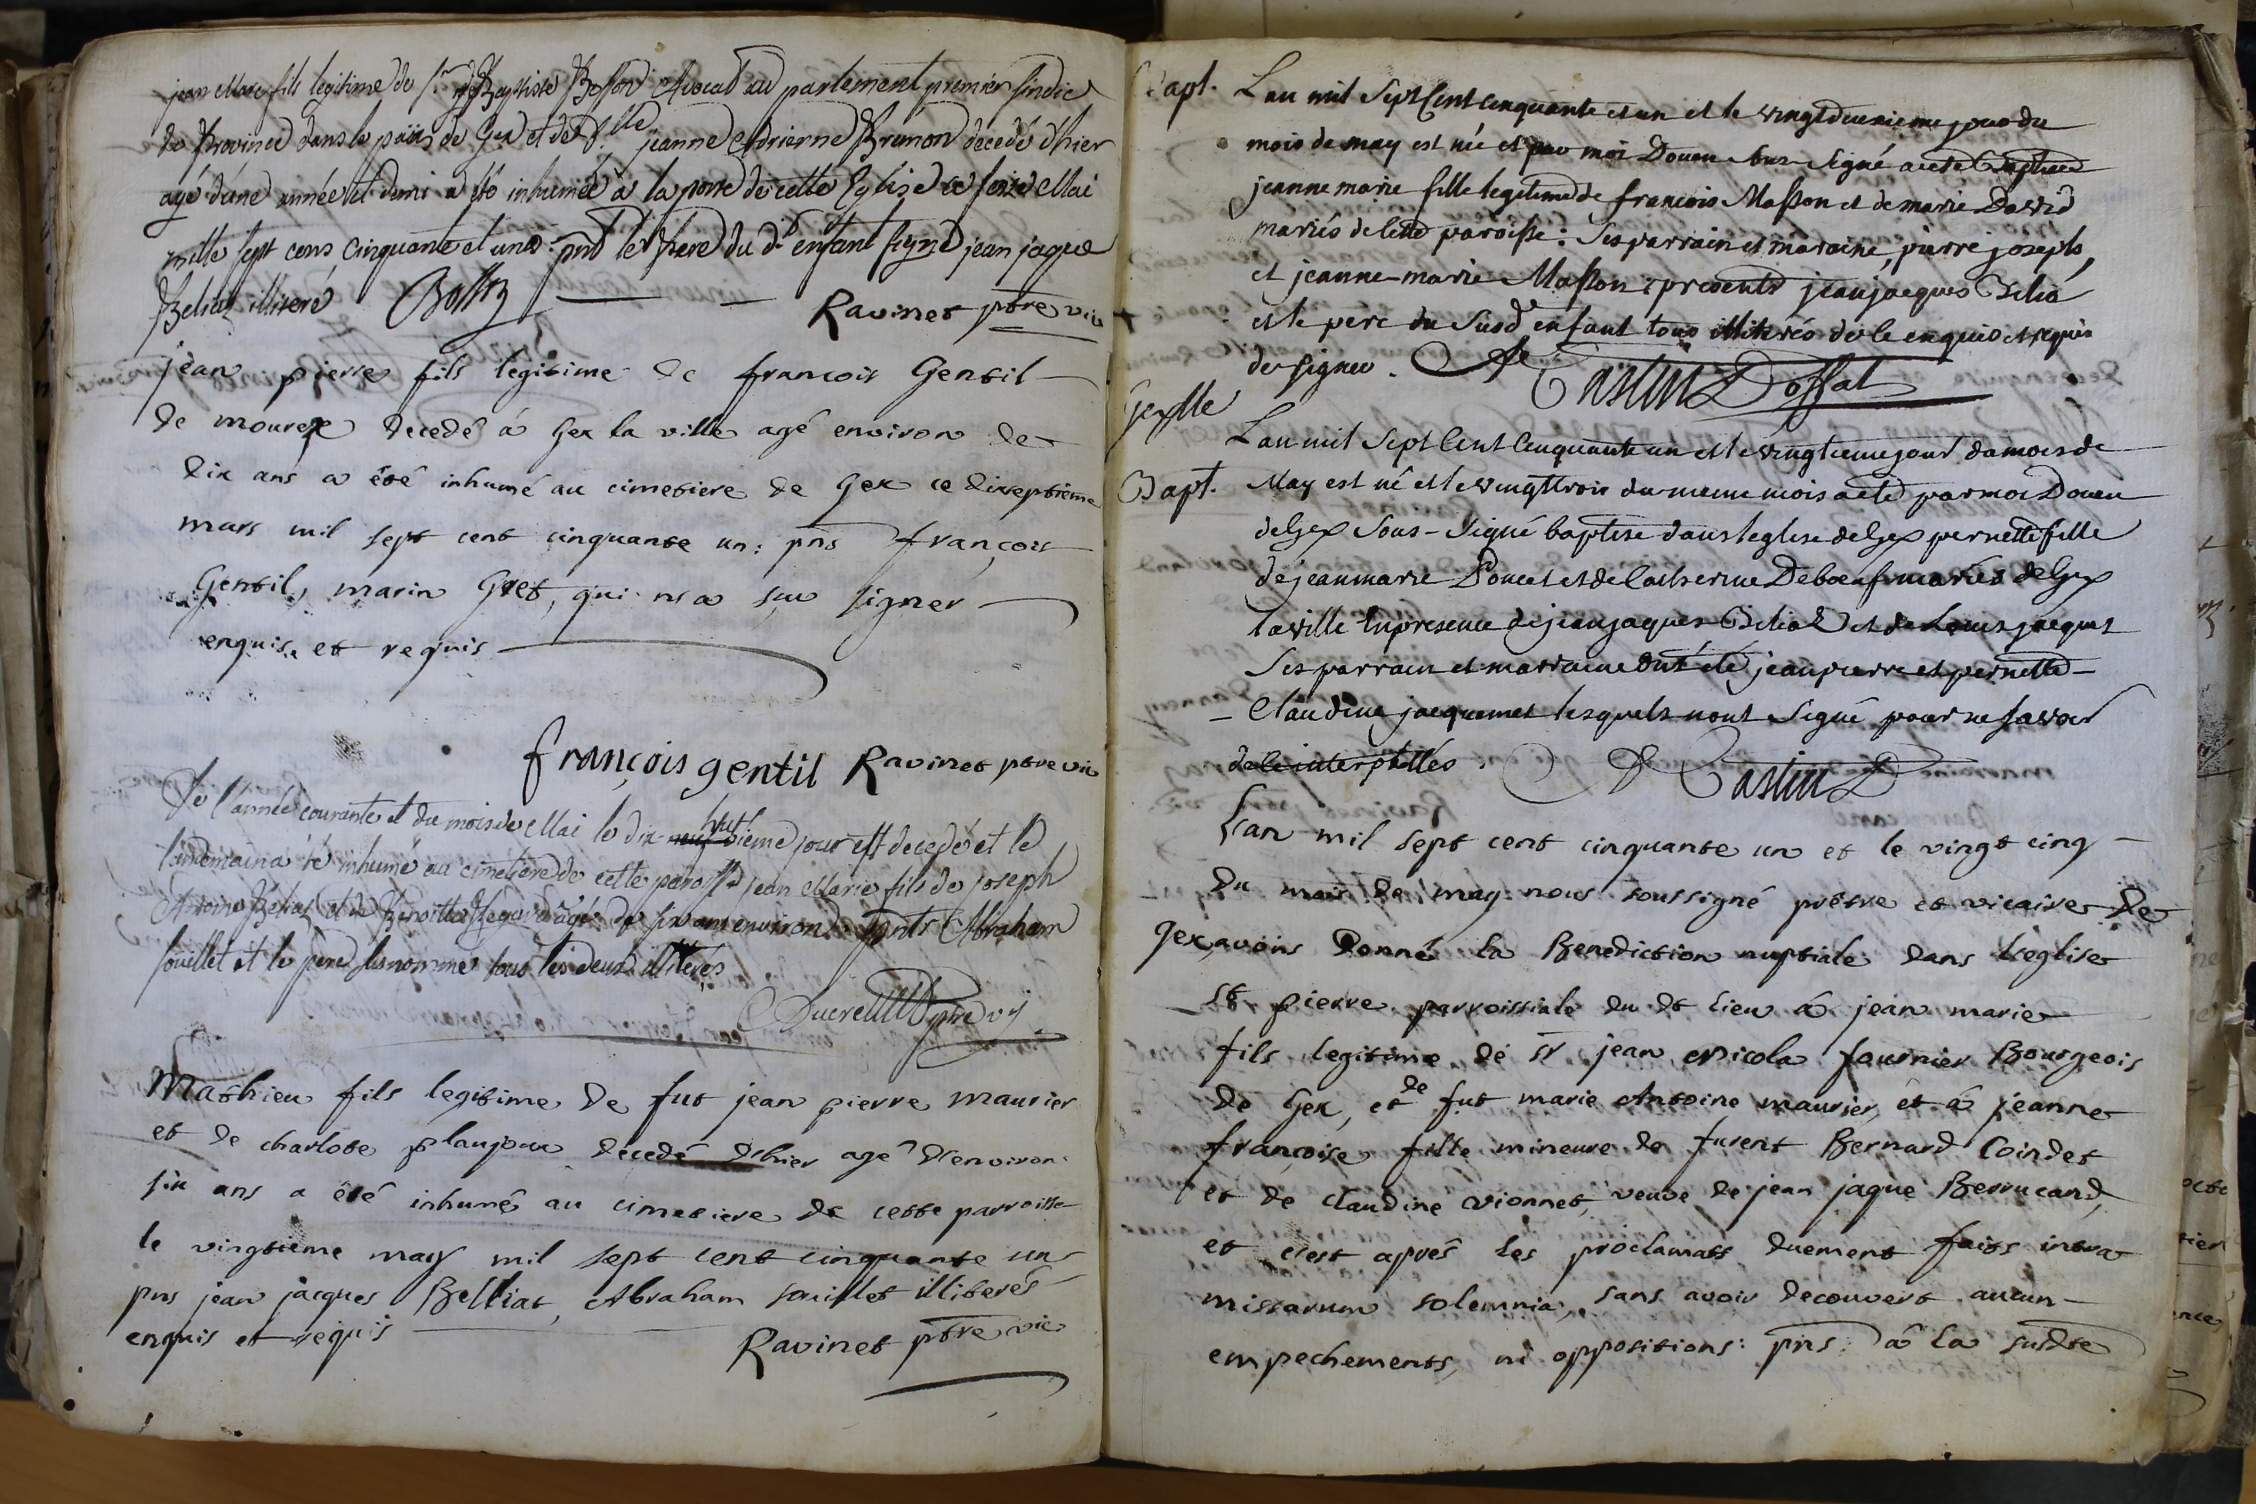 jean Marc fils legitime de Sr Jn Baptiste Bosson Avocat au parlement premier sindic
de Province dans le païs de Gex et de Dlle jeanne Adrienne Brunon decedé d'hier
agé d'une année et demi a été inhumé à la porte de cette Eglise ce seize Mai
mille sept cens cinquante et un pnt le pere du dt enfant signé jean jaque
Beliat illiteré Ravinet ptre vic
jean pierre fils legitime de francois Gentil
de mourex decedé á Gex la ville agé environ de
dix ans a été inhumé au cimetiere de Gex ce dixseptieme
mars mil sept cent cinquante un: pns françois
Gentil, marin Gret, qui n'a sçu signer
enquis et requis
françois gentil Ravinet ptre vic
De l'année courante et du mois de Mai le dix neuf huitieme jour est decedé et le
landemain a été inhumé au cimetiere de cette paroisse jean Marie fils de joseph
Antoine Beliat et de Benoitte agé de six ans environ pnts Abraham
souillet et le pere susnommé tous les deux illiterés
Ducret ptre vi
Mathieu fils legitime de fut jean pierre maurier
et de charlote plaujoux decedé d'hier agé d'environ
six ans a été inhumé au cimetiere de cette parroisse
le vingtieme may mil sept cent cinquante un
pns jean jacques Belliat, Abraham souillet illiterés
enquis et requis Ravinet ptre vic
Bapt. Lan mil Sept Cent Cinquante et un et le vingt deuxieme jour du
mois de may est née et par moi Doyen sous Signé a eté Baptisée
jeanne marie fille legitime de francois Masson et de marie David
mariés de Cette paroisse: Ses parrain et maraine, pierre joseph,
et jeanne-marie Masson: presents jean jacques Belia
et le pere du Susdt enfant tous illiterés de ce enquis et requis
de signer. Castin Dossat
Gexlle
Lan mil Sept Cent Cinquante un et le vingtieme jour du mois de
Bapt. May est né et le vingt trois du meme mois a eté par moi Doyen
de Gex Sous-Signé baptisé dans leglise de Gex pernette fille
de jean marie Poncet et de Catherine Deboeuf mariés de Gex
la ville En presence de jean jaques Beliat et de Louis jacquet
Ses parrain et marraine ont été jean pierre et pernette
Claudine jacquemet lesquels n'ont Signé pour ne savoir
de ce interpellés. Castin
L'an mil sept cent cinquante un et le vingt cinq
du mois de may: nous soussigné prêtre et vicaire de
Gex, avons Donné la Benediction nuptiale dans l'eglise
St pierre parroissiale du dt lieu á jean marie
fils legitime de sr jean Nicola fournier Bourgeois
de Gex, et de fut marie Antoine maurier, et á jeanne
françoise fille mineure de furent Bernard Coindet
et de claudine vionnet, veuve de jean jaque Berrucand,
et c'est aprés les proclamats duement faits intra
missarum solemnia, sans avoir decouvert aucun
empechements, ni oppositions: pns á la susdte